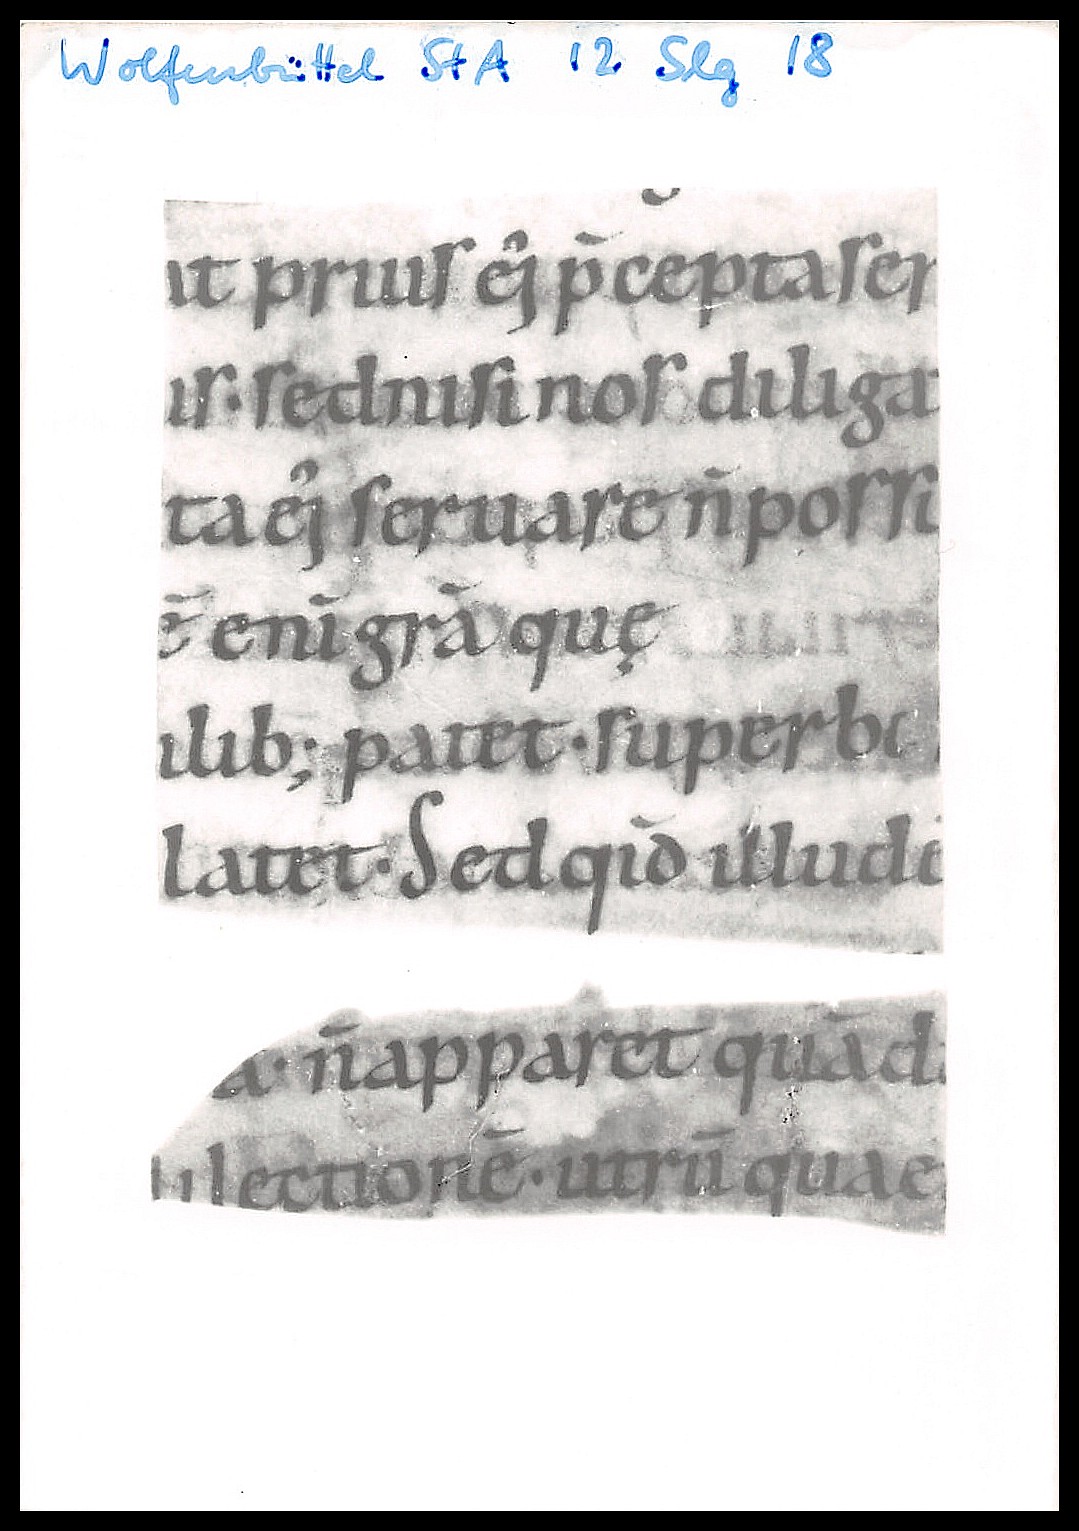 Wolfenbüttel StA 12 Slg 18
ut prius ej᾽ p̄cepta ser
is. sed nisi nos diliga
ta ej᾽ seruare n̄ possi
ē eni̅ gr̄a quę
ilib; patet. superbi
latet. Sed qi̅d illudi
a. n̄ apparet quā di
lilectionē. utrū quae